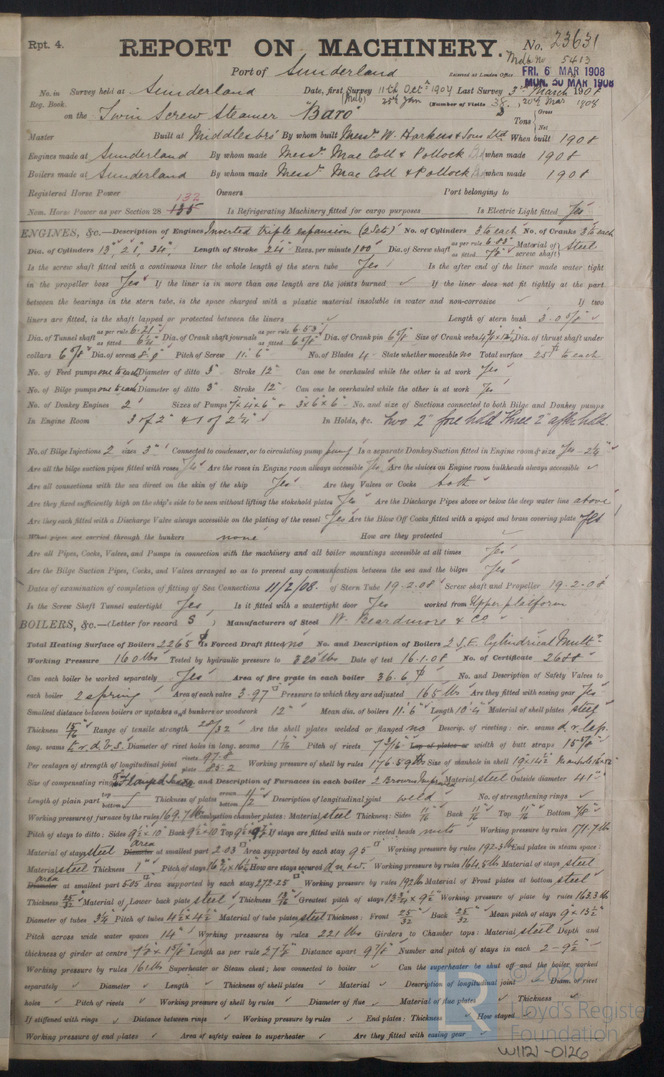 Rpt. 4.
REPORT ON MACHINERY. No. 23631
Mdb No 5413
Port of Sunderland
Received at London Office FRI. 6 MAR 1908
MON. 30 MAR 1908
No. in Survey held at Sunderland Date, first Survey 11th Oct 1907 Last Survey 3rd March 1908
Reg. Book. (Mdb) 25th Jan (Number of Visits 38) 20th Mar 1908
on the Twin Screw Steamer "Baro" Tons Gross Net
Master Built at Middlesbro' By whom built Messrs W. Harkess & Sons Ltd When built 1908
Engines made at Sunderland By whom made Messrs Mac Coll & Pollock when made 1908
Boilers made at Sunderland By whom made Messrs Mac Coll & Pollock when made 1908
Registered Horse Power Owners Port belonging to
Nom. Horse Power as per Section 28 132 135 Is Refrigerating Machinery fitted for cargo purposes Is Electric Light fitted Yes
ENGINES, &c.—Description of Engines Inverted triple expansion (2 sets) No. of Cylinders 3 each No. of Cranks 3 each
Dia. of Cylinders 13" 21" 34" Length of Stroke 24" Revs. per minute 100 Dia. of Screw shaft as per rule 6.88" as fitted Material of screw shaft Steel
Is the screw shaft fitted with a continuous liner the whole length of the stern tube Yes Is the after end of the liner made water tight
in the propeller boss Yes If the liner is in more than one length are the joints burned If the liner does not fit tightly at the part
between the bearings in the stern tube, is the space charged with a plastic material insoluble in water and non-corrosive If two
liners are fitted, is the shaft lapped or protected between the liners Length of stern bush
Dia. of Tunnel shaft as per rule 6.21" as fitted Dia. of Crank shaft journals as per rule 6.53" as fitted Dia. of Crank pin Size of Crank webs Dia. of thrust shaft under
collars Dia. of screw Pitch of Screw 11.6" No. of Blades 4 State whether moveable no Total surface 25 each
No. of Feed pumps one each Diameter of ditto 3" Stroke 12" Can one be overhauled while the other is at work Yes
No. of Bilge pumps one each Diameter of ditto 3" Stroke 12" Can one be overhauled while the other is at work Yes
No. of Donkey Engines 2 Sizes of Pumps 7"x4"x6" & 3"x6"x6" No. and size of Suctions connected to both Bilge and Donkey pumps
In Engine Room 3 of 2" & 1 of 2½" In Holds, &c. two 2" fore hold three 2" after hold
No. of Bilge Injections 2 sizes 3" Connected to condenser, or to circulating pump pump Is a separate Donkey Suction fitted in Engine room & size Yes - 2½"
Are all the bilge suction pipes fitted with roses Yes Are the roses in Engine room always accessible Yes Are the sluices on Engine room bulkheads always accessible
Are all connections with the sea direct on the skin of the ship Yes Are they Valves or Cocks both
Are they fixed sufficiently high on the ship's side to be seen without lifting the stokehold plates Yes Are the Discharge Pipes above or below the deep water line above
Are they each fitted with a Discharge Valve always accessible on the plating of the vessel Yes Are the Blow Off Cocks fitted with a spigot and brass covering plate Yes
What pipes are carried through the bunkers none How are they protected
Are all Pipes, Cocks, Valves, and Pumps in connection with the machinery and all boiler mountings accessible at all times Yes
Are the Bilge Suction Pipes, Cocks, and Valves arranged so as to prevent any communication between the sea and the bilges Yes
Dates of examination of completion of fitting of Sea Connections 11/2/08. of Stern Tube 19.2.08 Screw shaft and Propeller 19.2.08
Is the Screw Shaft Tunnel watertight Yes Is it fitted with a watertight door Yes worked from Upper platform
BOILERS, &c.—(Letter for record S) Manufacturers of Steel W. Beardmore & Co
Total Heating Surface of Boilers 2265 Is Forced Draft fitted no No. and Description of Boilers 2 S.E. Cylindrical Mult
Working Pressure 160 lbs Tested by hydraulic pressure to 320 lbs Date of test 16.1.08 No. of Certificate 2688
Can each boiler be worked separately Yes Area of fire grate in each boiler 36.6 No. and Description of Safety Valves to
each boiler 2 spring Area of each valve 3.97 Pressure to which they are adjusted 165 lbs Are they fitted with easing gear Yes
Smallest distance between boilers or uptakes and bunkers or woodwork 12" Mean dia. of boilers 11.6" Length Material of shell plates steel
Thickness 15/16" Range of tensile strength 28/32 Are the shell plates welded or flanged no Descrip. of riveting: cir. seams d.r. lap.
long. seams t.r.d.B.S. Diameter of rivet holes in long. seams 1 1/16" Pitch of rivets 7 3/16" Lap of plates or width of butt straps 15 5/8"
Per centages of strength of longitudinal joint rivets 97.8 plate 85.2 Working pressure of shell by rules 176.8 lbs Size of manhole in shell
Size of compensating ring and Description of Furnaces in each boiler 2 Brown Material steel Outside diameter 41"
Length of plain part top bottom Thickness of plates crown bottom Description of longitudinal joint weld No. of strengthening rings
Working pressure of furnace by the rules 169.7 lbs Combustion chamber plates: Material steel Thickness: Sides 11/16" Back 11/16" Top 11/16" Bottom 7/8"
Pitch of stays to ditto: Sides Back Top If stays are fitted with nuts or riveted heads nuts Working pressure by rules 171.7 lbs
Material of stays steel area Diameter at smallest part 2.03 Area supported by each stay 95 Working pressure by rules 192.3 lbs End plates in steam space:
Material steel Thickness 1" Pitch of stays How are stays secured d.n.&w. Working pressure by rules 164.5 lbs Material of stays steel
area Diameter at smallest part 5.05 Area supported by each stay 272.25 Working pressure by rules 192 lbs Material of Front plates at bottom steel
Thickness 25/32" Material of Lower back plate steel Thickness Greatest pitch of stays Working pressure of plate by rules 162.3 lbs
Diameter of tubes 3¼ Pitch of tubes 4½"x4½" Material of tube plates steel Thickness: Front 25/32" Back 25/32" Mean pitch of stays
Pitch across wide water spaces 14" Working pressures by rules 221 lbs Girders to Chamber tops: Material steel Depth and
thickness of girder at centre Length as per rule Distance apart Number and pitch of stays in each 2 - 9½"
Working pressure by rules 161 lbs Superheater or Steam chest; how connected to boiler Can the superheater be shut off and the boiler worked
separately Diameter Length Thickness of shell plates Material Description of longitudinal joint Diam. of rivet
holes Pitch of rivets Working pressure of shell by rules Diameter of flue Material of flue plates Thickness
If stiffened with rings Distance between rings Working pressure by rules End plates: Thickness How stayed
Working pressure of end plates Area of safety valves to superheater Are they fitted with easing gear
© 2020
LR
Lloyd's Register
Foundation
W1121-0126